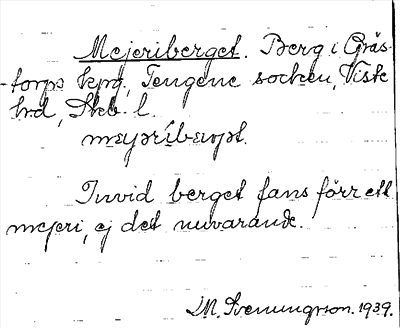 Mejeriberget. Berg i Gräs-
torps kpg, Tengene socken, Viste
hrd, Skb. l.
Invid berget fans förr ett
mejeri, ej det nuvarande.
M. Svenungsson. 1939.